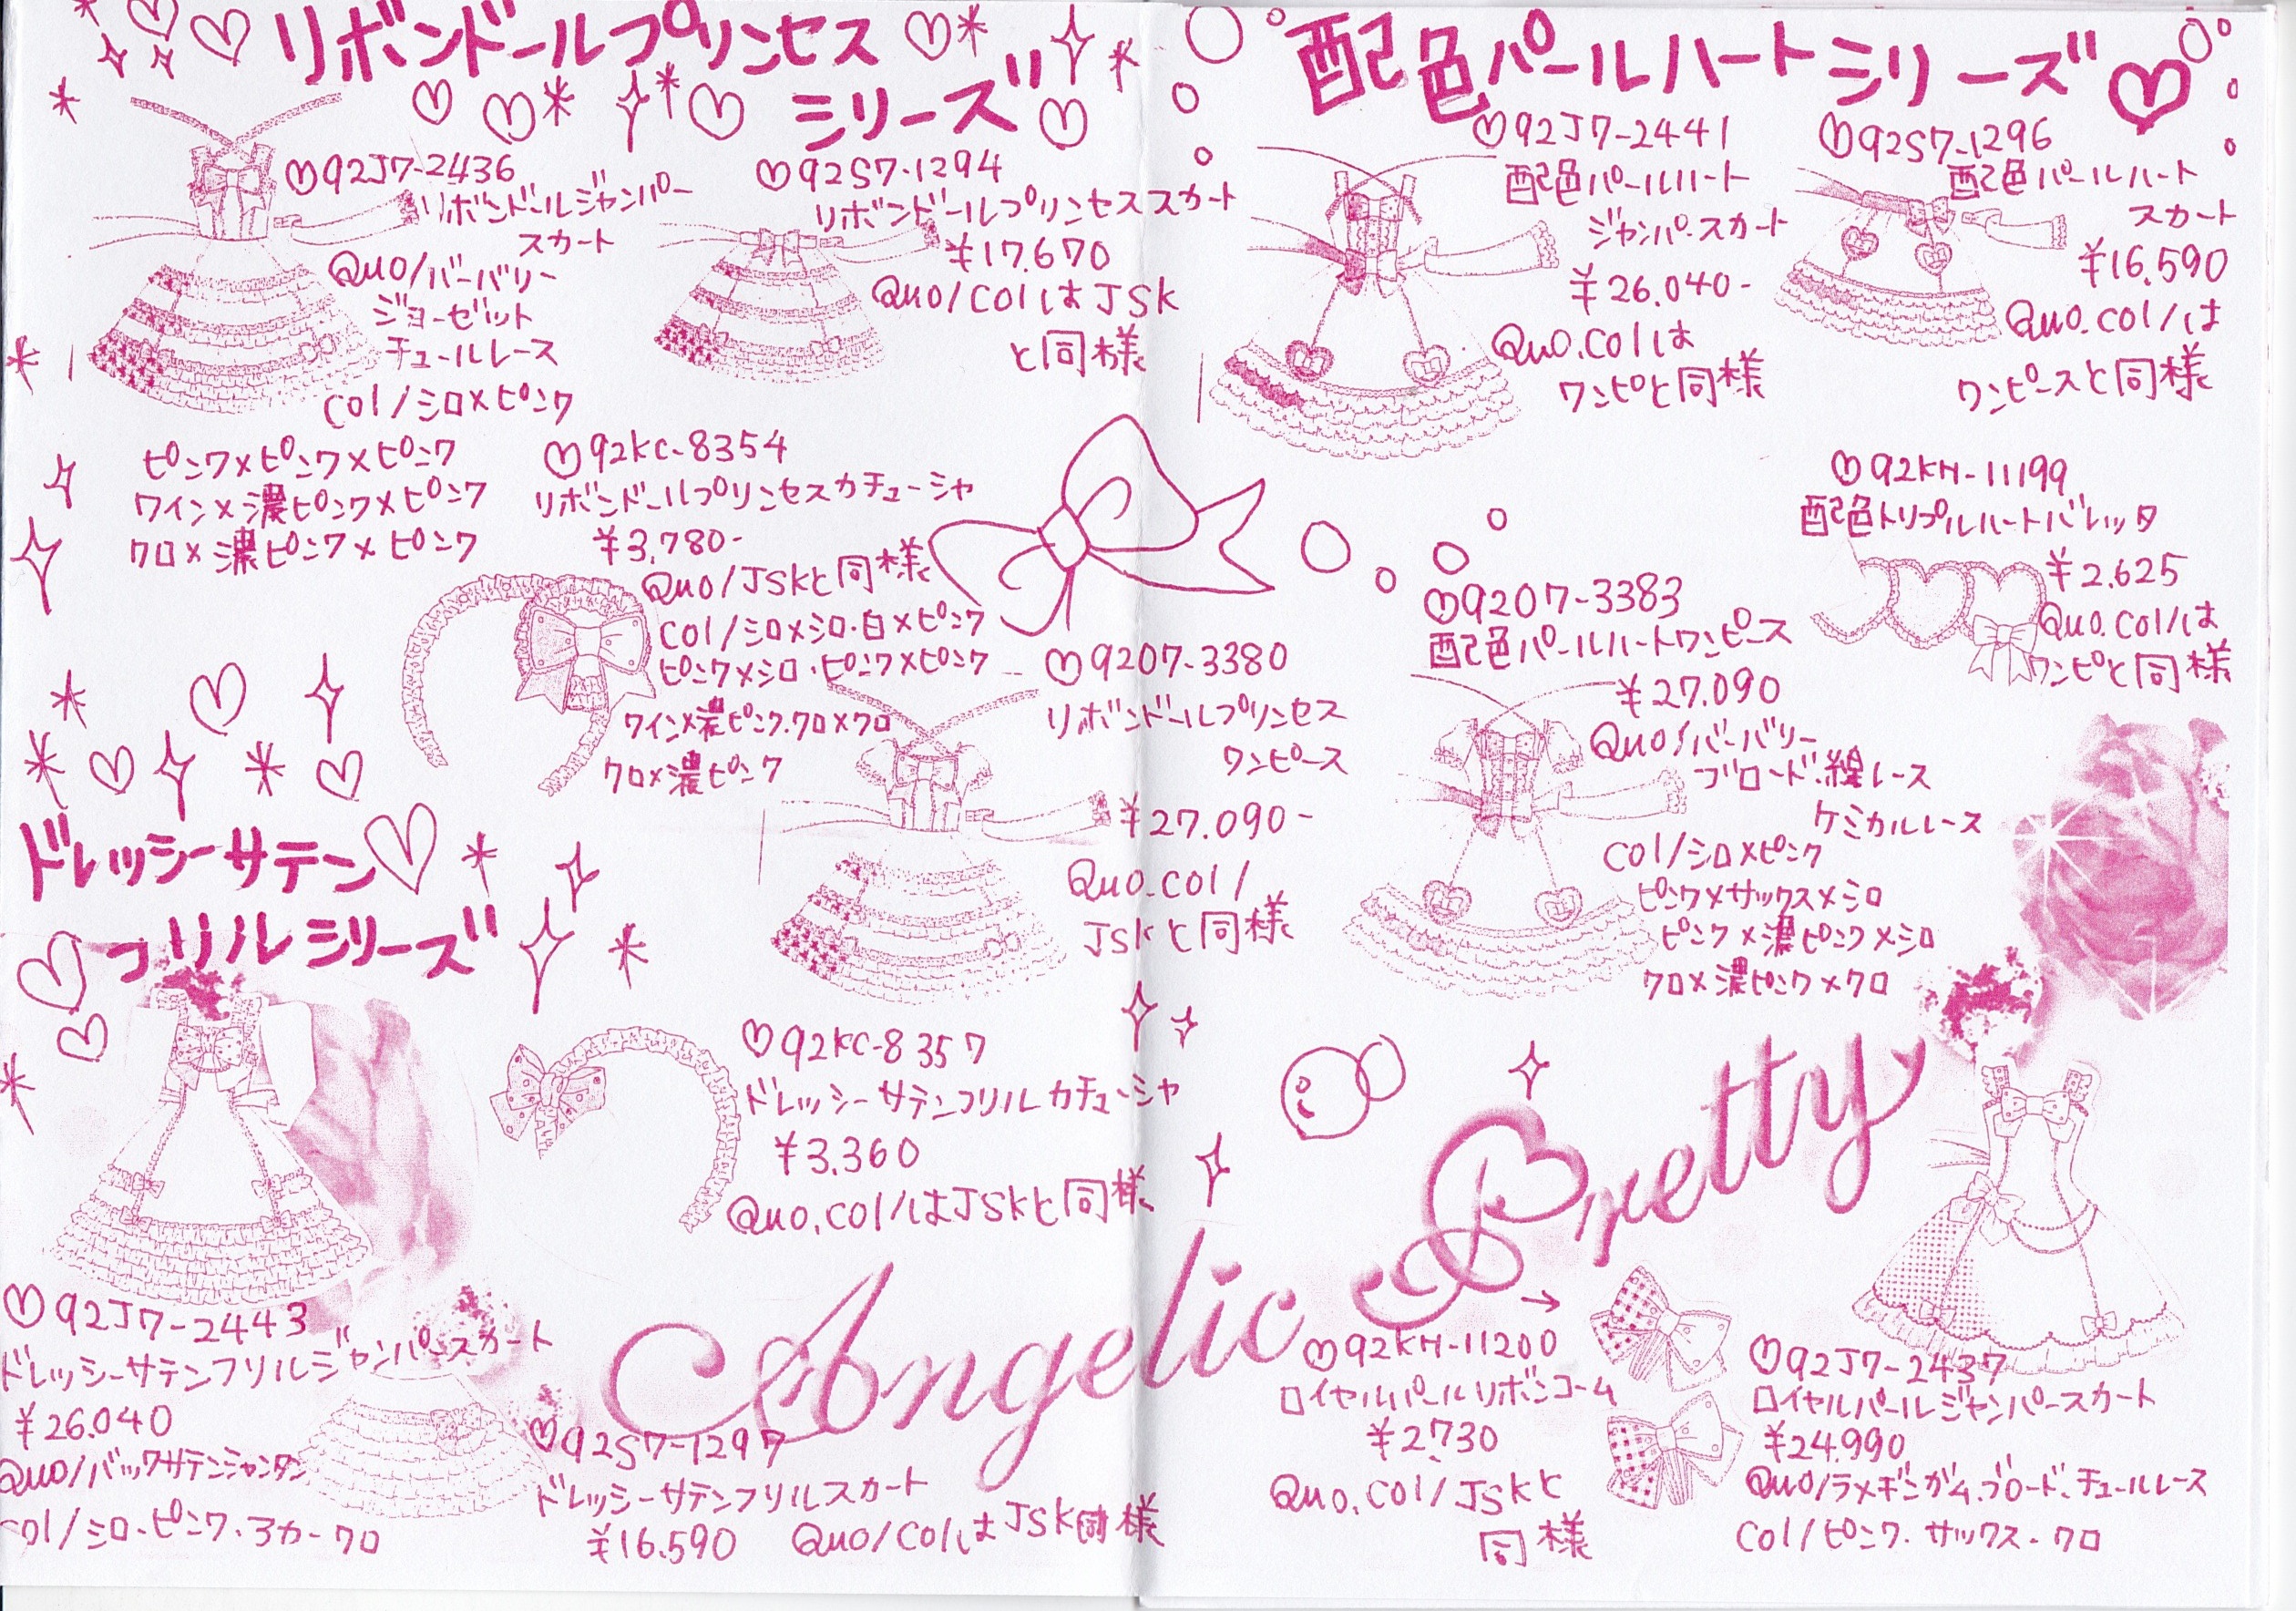 リボンドールプリンセス
シリーズ
♡92J7-2436
リボンドールジャンパー
スカート
Quo/バーバリー
ジョーゼット
チュールレース
Col/シロ×ピンク
ピンク×ピンク×ピンク
ワイン×濃ピンク×ピンク
クロ×濃ピンク×ピンク
♡92S7-1294
リボンドールプリンセススカート
¥17.670
Quo/ColはJSK
と同様
♡92KC-8354
リボンドールプリンセスカチューシャ
¥3.780-
Quo/JSKと同様
Col/シロ×シロ・白×ピンク
ピンク×シロ・ピンク×ピンク
ワイン×濃ピンク.クロ×クロ
クロ×濃ピンク
♡9207-3380
リボンドールプリンセス
ワンピース
¥27.090-
Quo.Col/
JSKと同様
ドレッシーサテン
フリルシリーズ
♡92J7-2443
ドレッシーサテンフリルジャンパースカート
¥26.040
Quo/バックサテンシャンタン
Col/シロ・ピンク・アカ・クロ
♡92KC-8357
ドレッシーサテンフリルカチューシャ
¥3.360
Quo.Col/はJSKと同様
♡92S7-1297
ドレッシーサテンフリルスカート
¥16.590
Quo/ColはJSK同様
配色パールハートシリーズ♡
♡92J7-2441
配色パールハート
ジャンパ.スカート
¥26.040-
Quo.Colは
ワンピと同様
♡92S7-1296
配色パールハート
スカート
¥16.590
Quo.Col/は
ワンピースと同様
♡92KH-11199
配色トリプルハートバレッタ
¥2.625
Quo.Col/は
ワンピと同様
♡9207-3383
配色パールハートワンピース
¥27.090
Quo/バーバリー
ブロード.綿レース
ケミカルレース
Col/シロ×ピンク
ピンク×サックス×シロ
ピンク×濃ピンク×シロ
クロ×濃ピンク×クロ
Angelic Pretty
♡92KH-11200
ロイヤルパールリボンコーム
¥2.730
Quo.Col/JSKと
同様
♡92J7-2437
ロイヤルパールジャンパースカート
¥24.990
Quo/ラメギンガム.ブロード.チュールレース
Col/ピンク.サックス.クロ